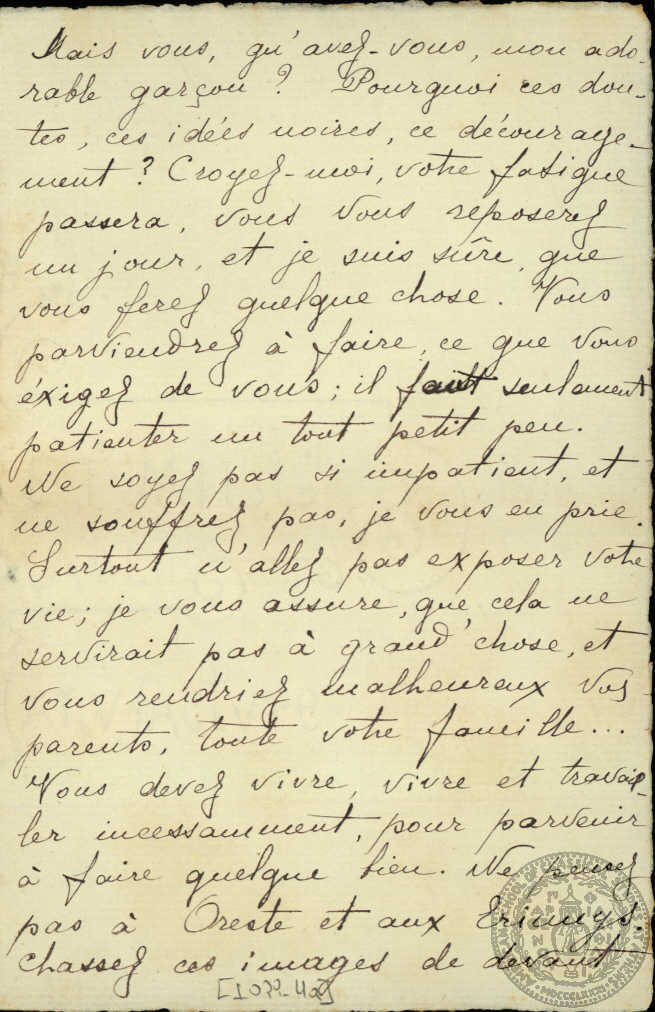 Mais vous, qu'avez-vous, mon ado-
rable garçon? Pourquoi ces dou-
tes, ces idées noires, ce décourage-
ment? Croyez-moi, votre fatigue
passera, vous vous reposerez
un jour, et je suis sûre, que
vous ferez quelque chose. Vous
parviendrez à faire, ce que vous
éxigez de vous; il faut seulement
patienter un tout petit peu.
Ne soyez pas si impatient, et
ne souffrez pas, je vous en prie.
Surtout n'allez pas exposer votre
vie; je vous assure, que cela ne
servirait pas à grand'chose, et
vous rendriez malheureux vos
parents, toute votre famille...
Vous devez vivre, vivre et travail-
ler incessamment, pour parvenir
à faire quelque bien. Ne pensez
pas à Oreste et aux Erinnys.
Chassez ces images de devant
[1079-4a]